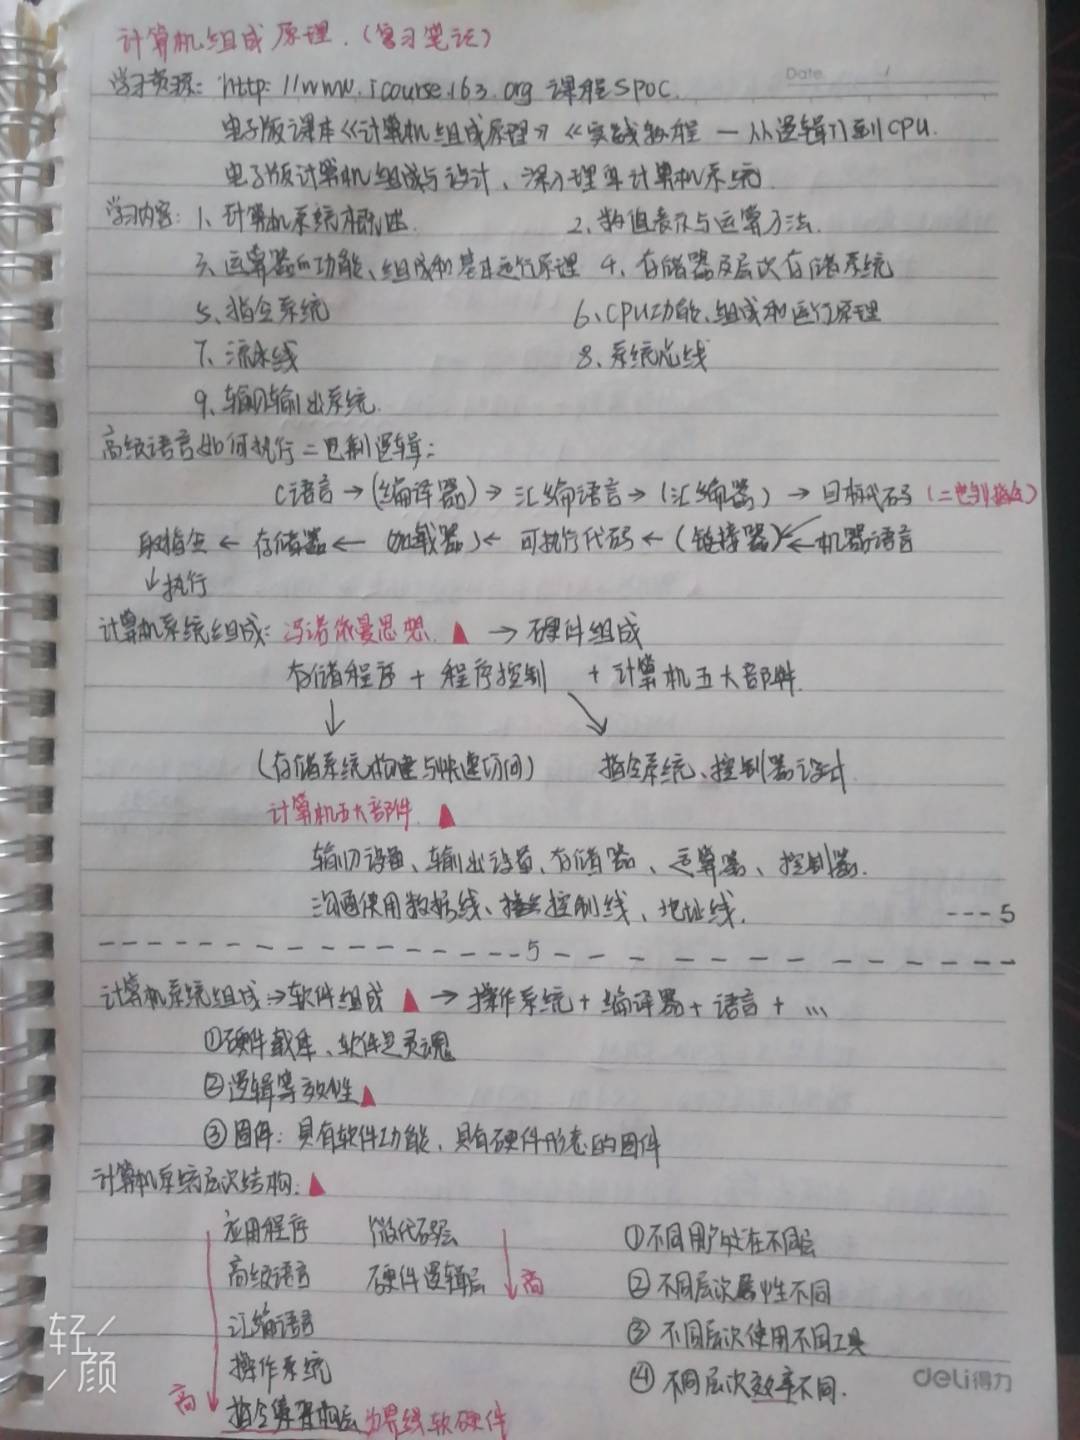 计算机组成原理.(复习笔记)
Date
学习资源: http://www.icourse163.org 课程SPOC.
电子版课本《计算机组成原理》《实践教程 — 从逻辑门到CPU.
电子版计算机组成与设计、深入理解计算机系统.
学习内容: 1、计算机系统概述. 2、数值表示与运算方法.
3、运算器的功能、组成和基本运行原理 4、存储器及层次存储系统
5、指令系统 6、CPU功能、组成和运行原理
7、流水线 8、系统总线
9、输入输出系统.
高级语言如何执行二进制逻辑:
C语言→(编译器)→汇编语言→(汇编器)→目标代码(二进制指令)
取指令←存储器←(加载器)←可执行代码←(链接器)←机器语言
↓执行
计算机系统组成: 冯诺依曼思想. ▲ →硬件组成
存储程序 + 程序控制 + 计算机五大部件.
↓ ↘
(存储系统构建与快速访问) 指令系统、控制器设计
计算机五大部件. ▲
输入设备、输出设备、存储器、运算器、控制器.
沟通使用数据线、控制线、地址线. ---5
5
计算机系统组成→软件组成 ▲ →操作系统+编译器+语言+…
①硬件载体、软件是灵魂
②逻辑等效性▲
③固件: 具有软件功能、具有硬件形态的固件
计算机系统层次结构: ▲
应用程序 微代码层 ①不同用户处在不同层
高级语言 硬件逻辑层 高 ②不同层次属性不同
汇编语言 ③不同层次使用不同工具
操作系统 ④不同层次效率不同.
高 指令集架构层 为界线软硬件
轻颜
deli得力